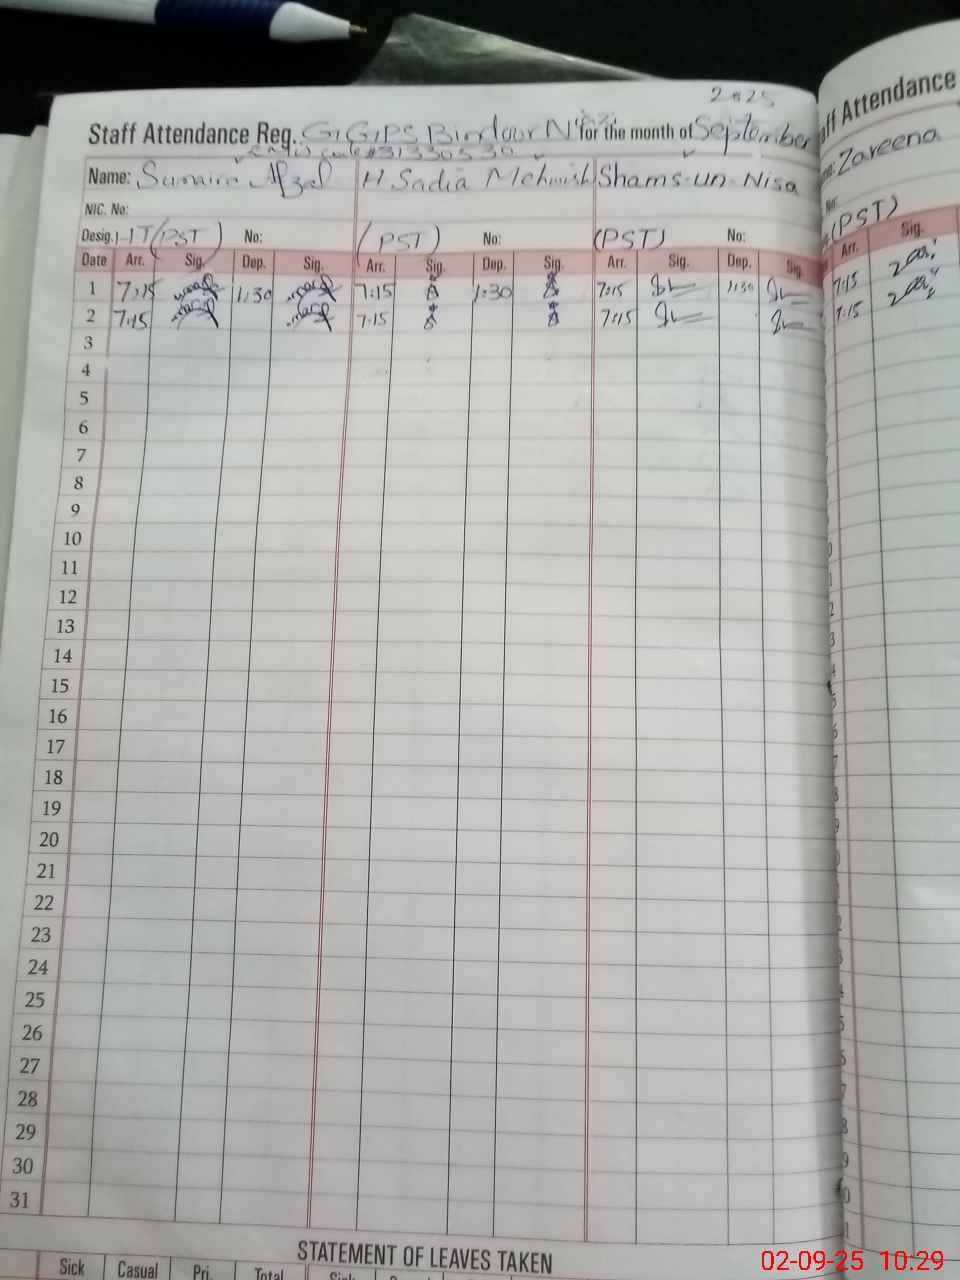 2025
Staff Attendance Reg. G.G.P.S Bindour N for the month of September
Name: Sumaira Afzal H. Sadia Mehwish Shams-un-Nisa
NIC. No:
Desig. HT(PST) No: (PST) No: (PST) No:
Date Arr. Sig. Dep. Sig. Arr. Sig. Dep. Sig. Arr. Sig. Dep. Sig.
1 7:15 1:30 7:15 1:30 7:15 1:30
2 7:15 7:15 7:15
3
4
5
6
7
8
9
10
11
12
13
14
15
16
17
18
19
20
21
22
23
24
25
26
27
28
29
30
31
STATEMENT OF LEAVES TAKEN
Sick Casual Pri. Total Sick
Attendance
Zareena
(PST)
Arr. Sig.
7:15
7:15
02-09-25 10:29